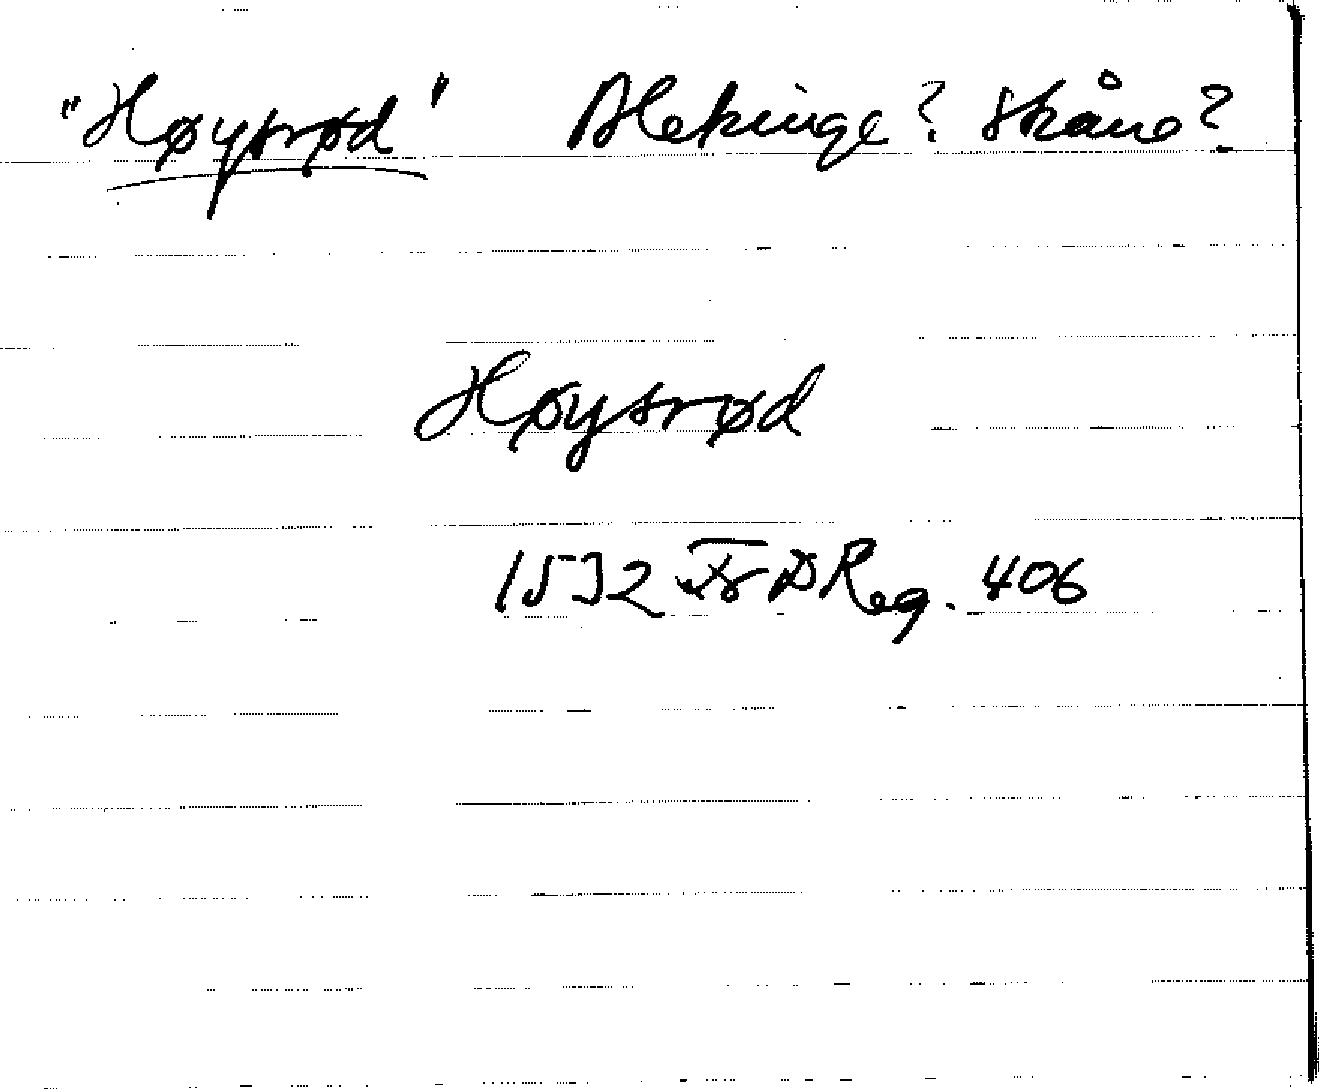 "Høysrød" Blekinge? Skåne?
Høysrød
1532 Fr DReg. 406